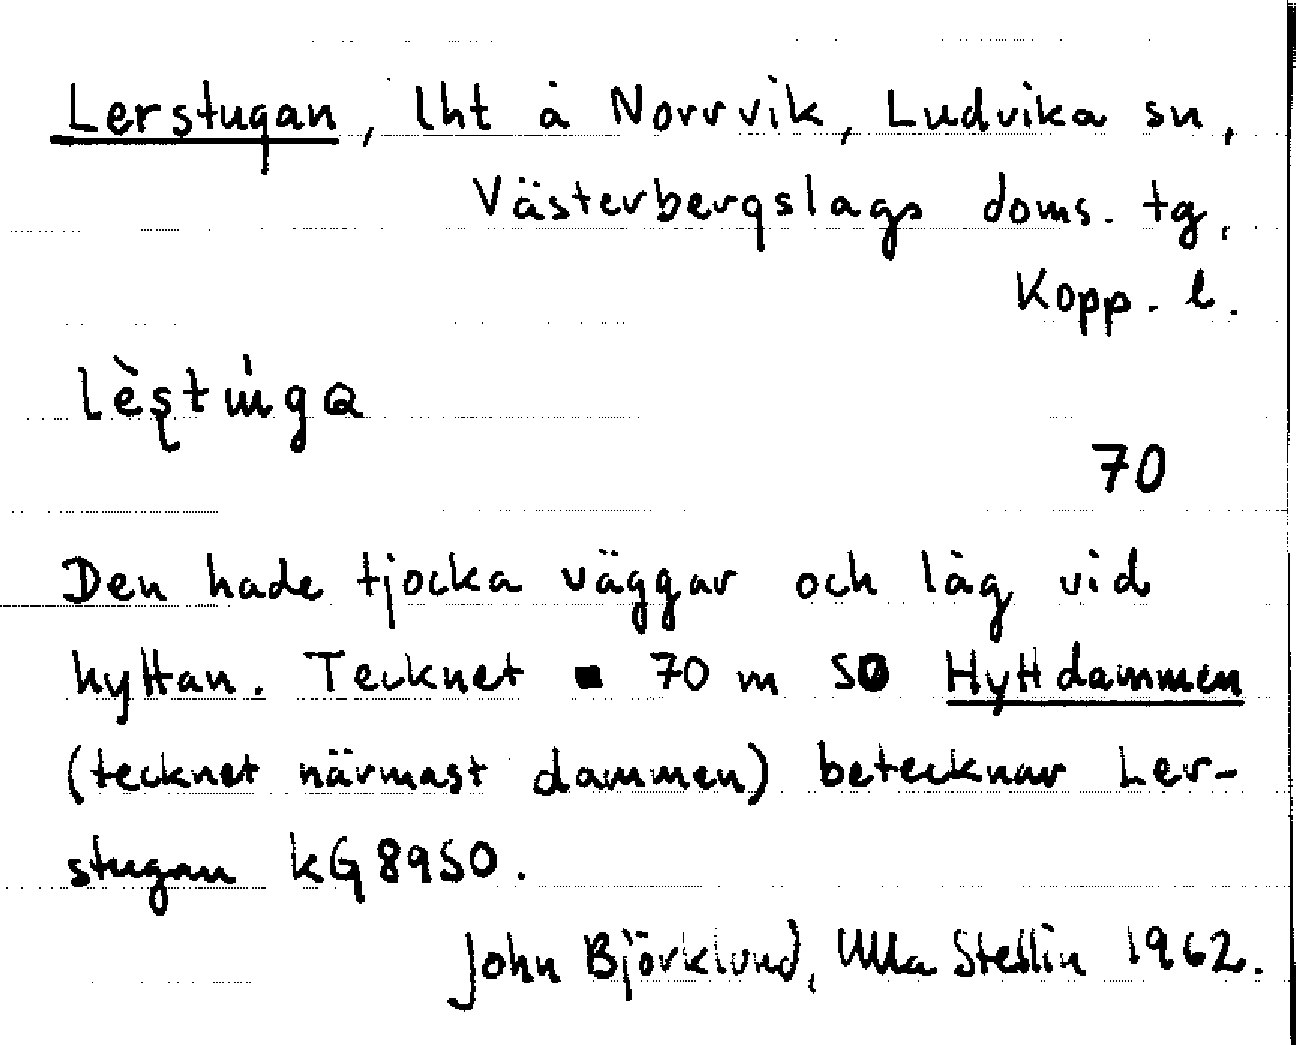 Lerstugan, lht å Norrvik, Ludvika sn,
Västerbergslags doms. tg,
Kopp. l.
70
Den hade tjocka väggar och låg vid
hyttan. Tecknet ▪ 70 m SO Hyttdammen
(tecknet närmast dammen) betecknar Ler-
stugan kG 8950.
John Björklund, Ulla Stellin 1962.